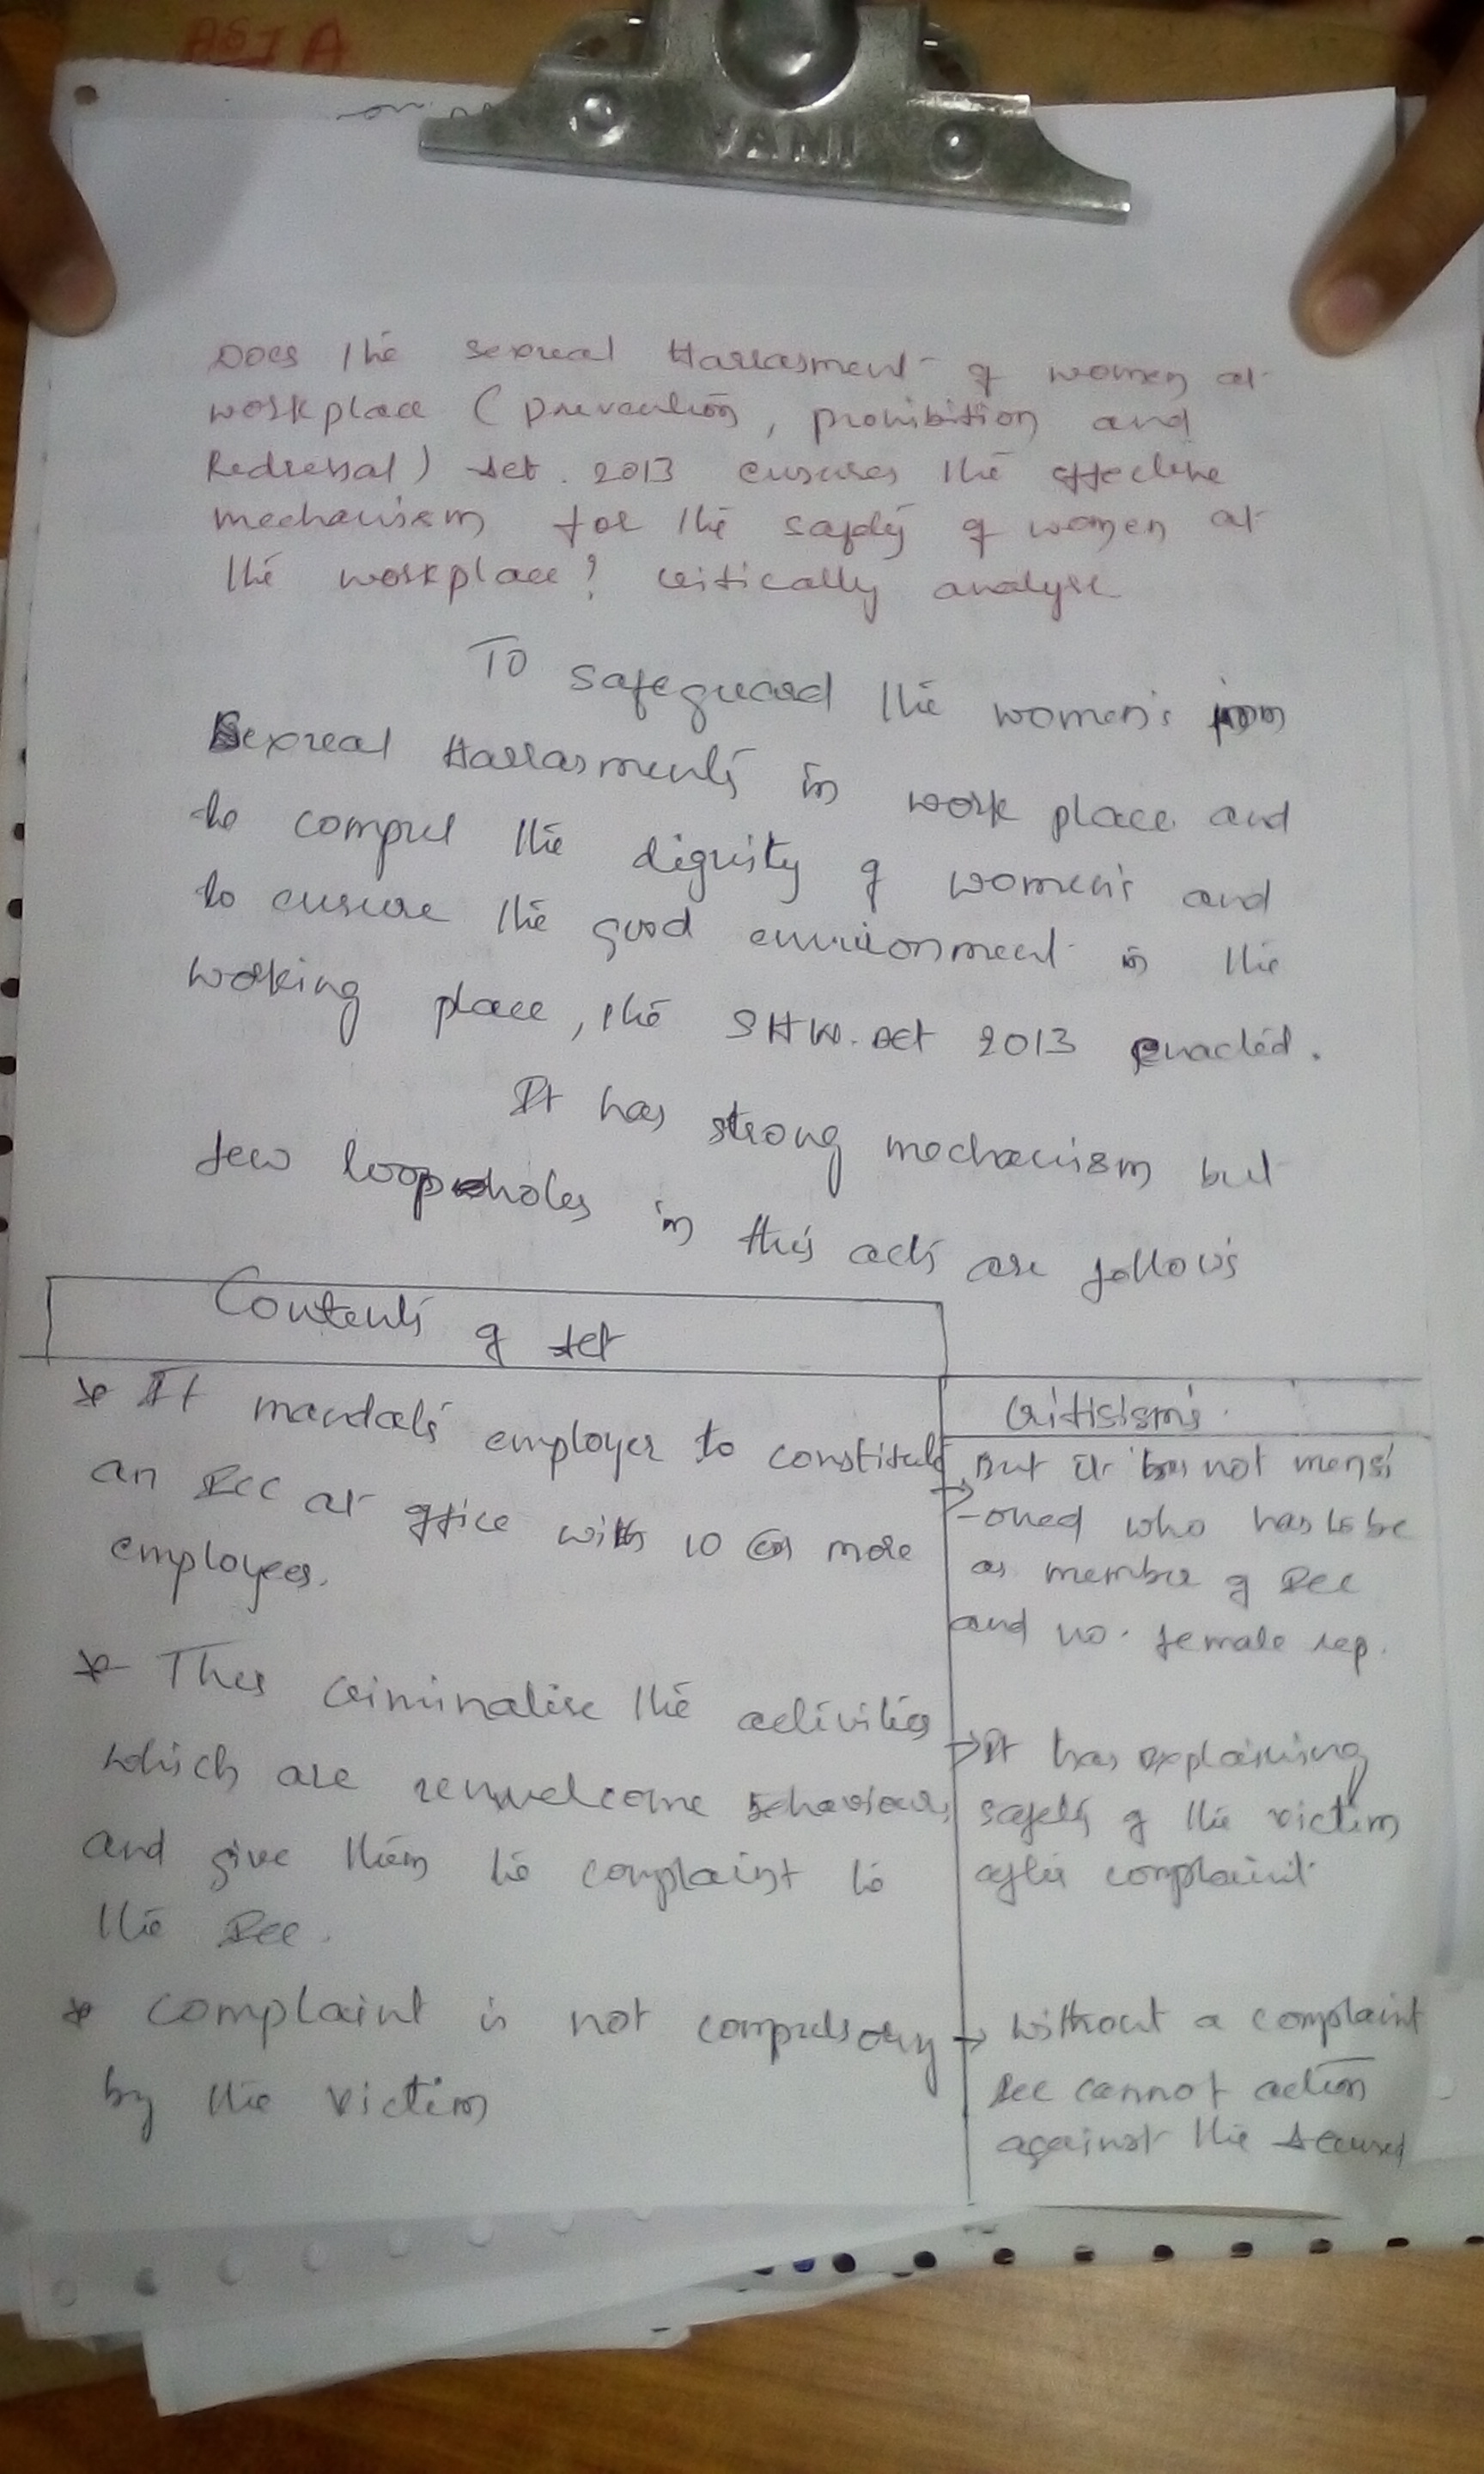 ASIA
VANI
Does the sexual Harrasment of women at
workplace (prevention, prohibition and
Redressal) Act. 2013 ensures the effective
mechanism for the safety of women at
the workplace? critically analyse
To safeguard the women's from
Sexual Harrasments in work place and
to the dignity of women's and
to ensure the good environment in the
working place, the SHW. Act 2013 enacted.
It has strong mechanism but
few loopholes in this acts are follows
Contents of Act
* It mandats employer to constitute
an ICC at office with 10 or more
employees.
Critisisms.
→ But it has not mensi
-oned who has to be
as member of ICC
and no. female rep.
* This criminalise the activities
which are unwelcome behaviour,
and give them to complaint to
the ICC.
→ It has explaining
safety of the victim
after complaint
* Complaint is not compulsory
by the victim
→ without a complaint
ICC cannot action
against the Accused